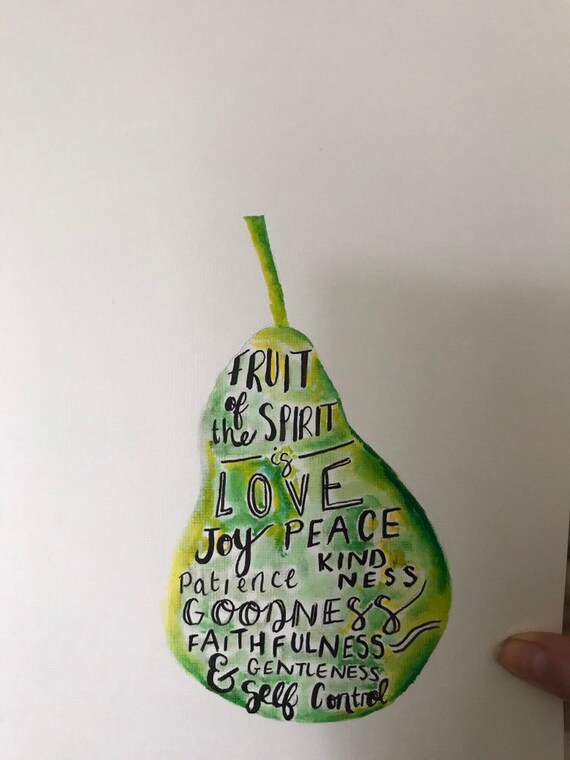 FRUIT
of
the SPIRIT
is
LOVE
Joy PEACE
Patience KIND
NESS
GOODNESS
FAITHFULNESS
& GENTLENESS
Self Control